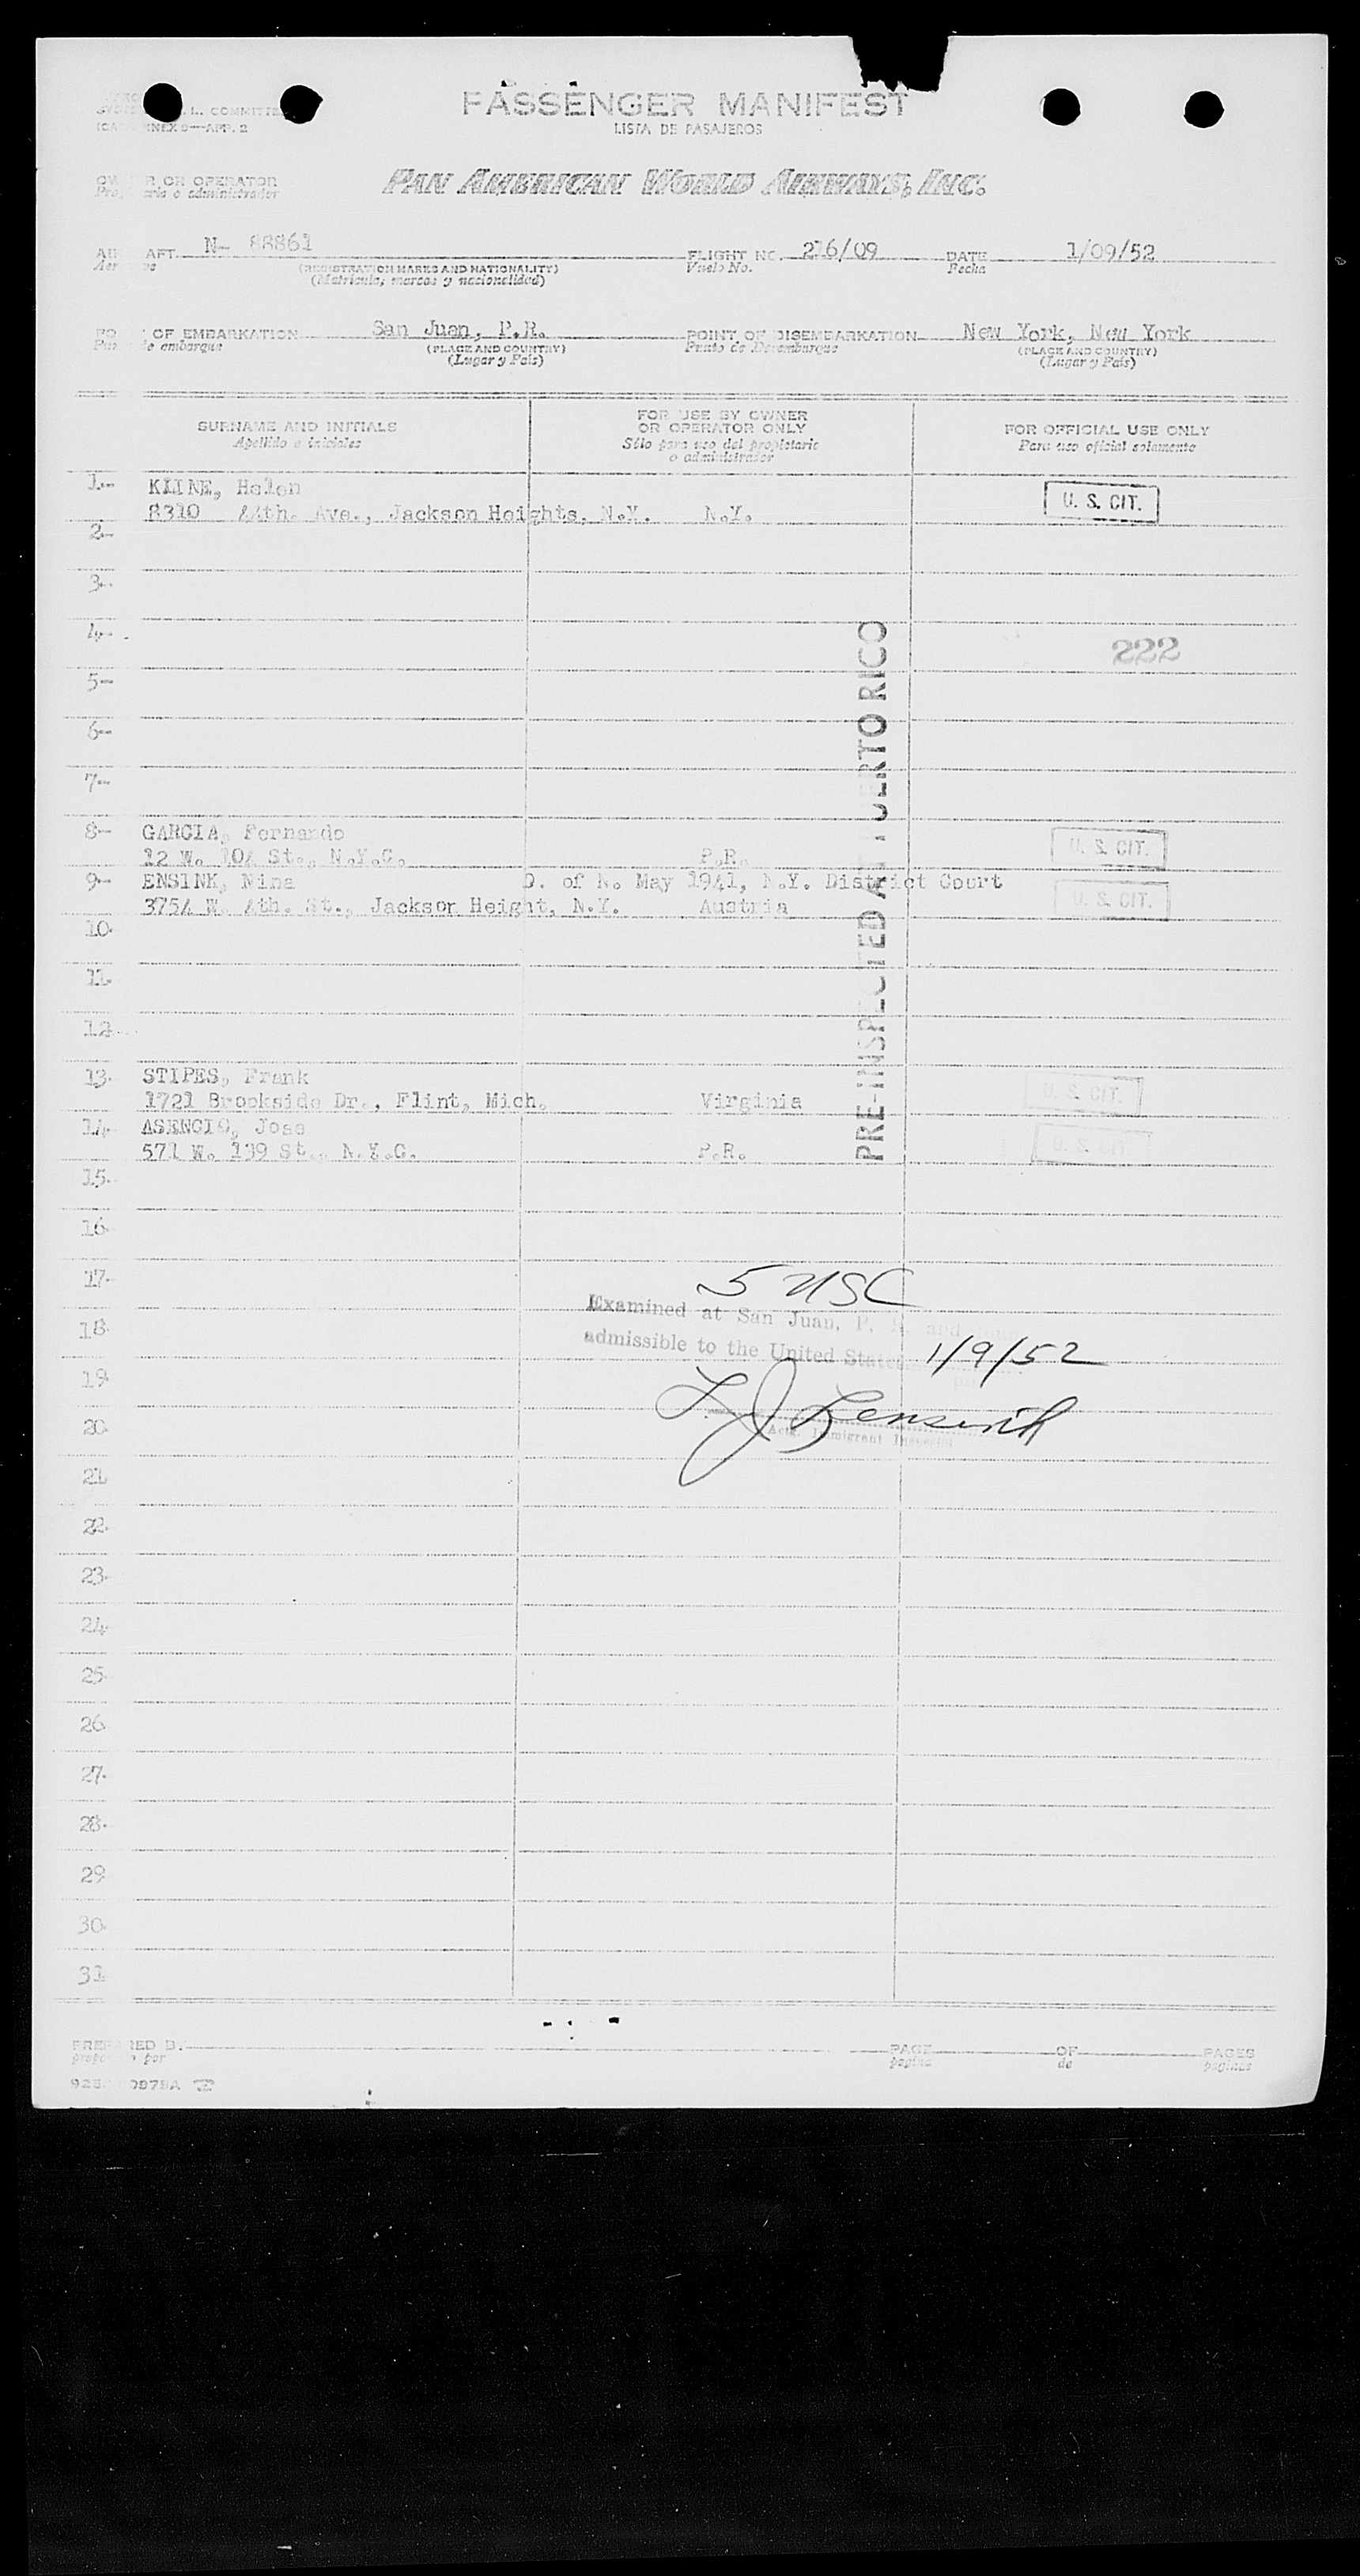 PASSENGER MANIFEST
LISTA DE PASAJEROS
COMMITTEE
ANNEX 9—APP. 2
OR OPERATOR
o administrador
PAN AMERICAN WORLD AIRWAYS, INC.
N- 88861
FLIGHT NO. 216/09 DATE 1/09/52
Vuelo No. Fecha
(REGISTRATION MARKS AND NATIONALITY)
(Matricula, marcas y nacionalidad)
OF EMBARKATION San Juan, P.R. POINT OF DISEMBARKATION New York, New York
embarque (PLACE AND COUNTRY) Punto de Desembarque (PLACE AND COUNTRY)
(Lugar y País) (Lugar y País)
SURNAME AND INITIALS
Apellido e iniciales
FOR USE BY OWNER
OR OPERATOR ONLY
Sólo para uso del propietario
o administrador
FOR OFFICIAL USE ONLY
Para uso oficial solamente
1- KLINE, Helen U. S. CIT.
8310 44th. Ave., Jackson Heights, N.Y. N.Y.
2-
3-
4- 222
5-
6-
7-
8- GARCIA, Fernando U. S. CIT.
12 W. 104 St., N.Y.C. P.R.
9- ENSINK, Nina O. of N. May 1941, N.Y. District Court U. S. CIT.
3754 W. 4th. St., Jackson Height, N.Y. Austria
10-
11-
12-
13- STIPES, Frank U. S. CIT.
1721 Brookside Dr., Flint, Mich. Virginia
14- ASENCIO, Jose U. S. CIT.
571 W. 139 St., N.Y.C. P.R.
PRE-INSPECTED AT PUERTO RICO
15-
16-
17- 5 USC
Examined at San Juan, P. R. and
18-
admissible to the United States 1/9/52
19-
20-
Immigrant Inspector
21-
22-
23-
24-
25-
26-
27-
28-
29-
30-
31-
PREPARED B. PAGE OF PAGES
por pagina de paginas